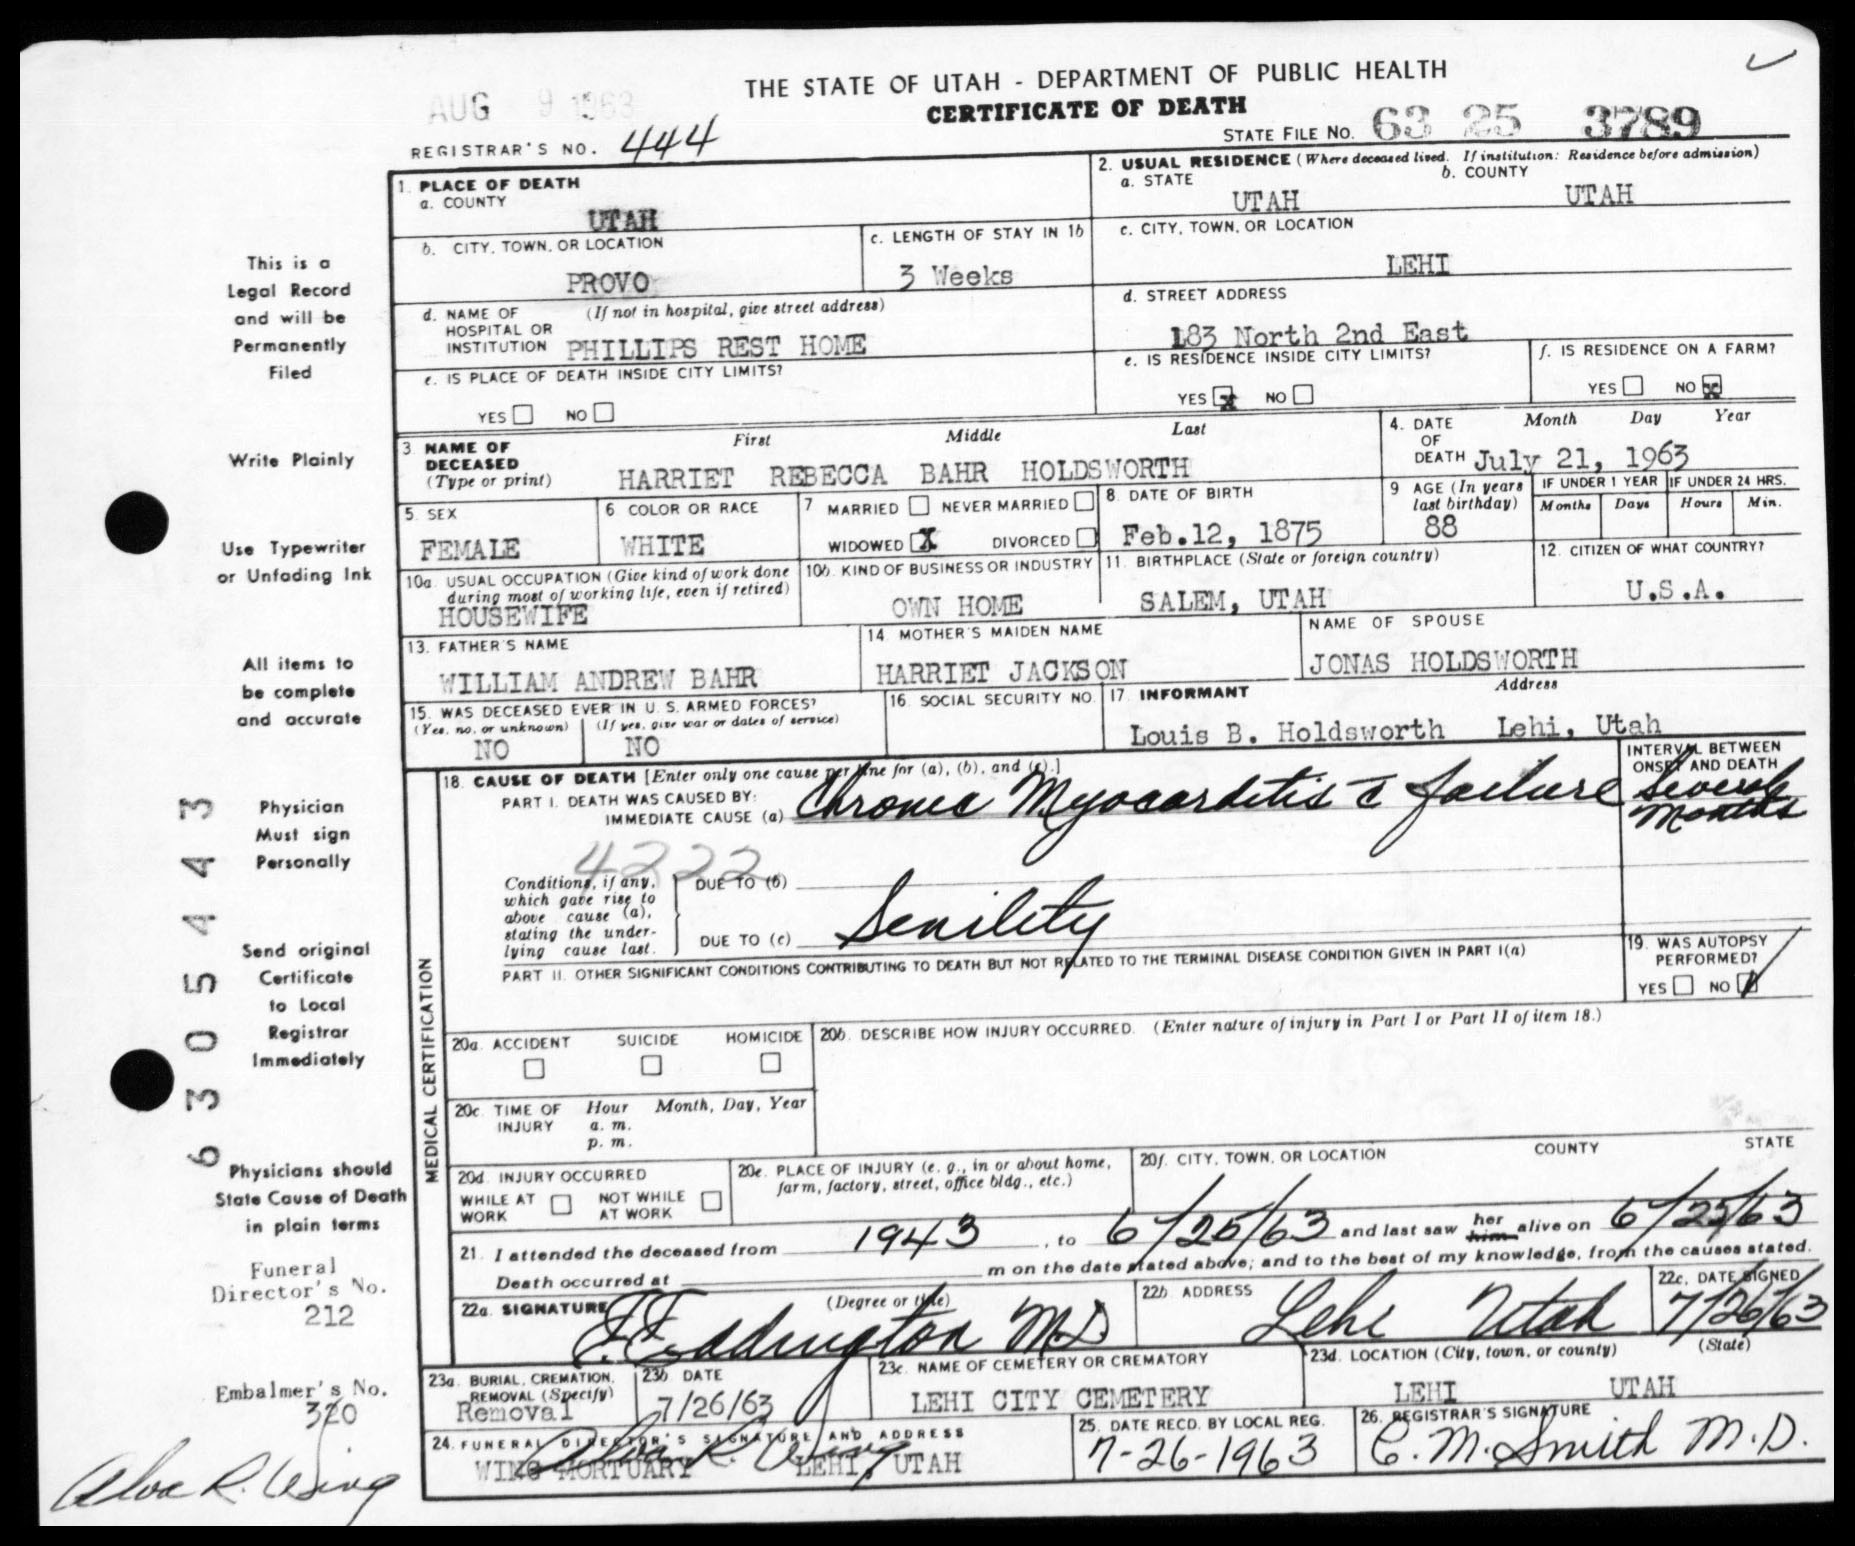 THE STATE OF UTAH - DEPARTMENT OF PUBLIC HEALTH
AUG 9 1963
CERTIFICATE OF DEATH
REGISTRAR'S NO. 444
STATE FILE NO. 63 25 3789
1. PLACE OF DEATH
a. COUNTY
UTAH
2. USUAL RESIDENCE (Where deceased lived. If institution: Residence before admission)
a. STATE
UTAH
b. COUNTY
UTAH
b. CITY, TOWN, OR LOCATION
PROVO
c. LENGTH OF STAY IN 1b
3 Weeks
c. CITY, TOWN, OR LOCATION
LEHI
d. NAME OF HOSPITAL OR INSTITUTION (If not in hospital, give street address)
PHILLIPS REST HOME
d. STREET ADDRESS
183 North 2nd East
e. IS PLACE OF DEATH INSIDE CITY LIMITS?
YES NO
e. IS RESIDENCE INSIDE CITY LIMITS?
YES X NO
f. IS RESIDENCE ON A FARM?
YES NO X
3. NAME OF DECEASED (Type or print)
First Middle Last
HARRIET REBECCA BAHR HOLDSWORTH
4. DATE OF DEATH
Month Day Year
July 21, 1963
5. SEX
FEMALE
6. COLOR OR RACE
WHITE
7 MARRIED NEVER MARRIED
WIDOWED X DIVORCED
8. DATE OF BIRTH
Feb.12, 1875
9 AGE (In years last birthday)
88
IF UNDER 1 YEAR
Months Days
IF UNDER 24 HRS.
Hours Min.
10a. USUAL OCCUPATION (Give kind of work done during most of working life, even if retired)
HOUSEWIFE
10b. KIND OF BUSINESS OR INDUSTRY
OWN HOME
11. BIRTHPLACE (State or foreign country)
SALEM, UTAH
12. CITIZEN OF WHAT COUNTRY?
U.S.A.
13. FATHER'S NAME
WILLIAM ANDREW BAHR
14. MOTHER'S MAIDEN NAME
HARRIET JACKSON
NAME OF SPOUSE
JONAS HOLDSWORTH
15. WAS DECEASED EVER IN U. S. ARMED FORCES?
(Yes, no, or unknown) (If yes, give war or dates of service)
NO NO
16. SOCIAL SECURITY NO.
17. INFORMANT Address
Louis B. Holdsworth Lehi, Utah
MEDICAL CERTIFICATION
18. CAUSE OF DEATH [Enter only one cause per line for (a), (b), and (c).]
INTERVAL BETWEEN ONSET AND DEATH
PART I. DEATH WAS CAUSED BY:
IMMEDIATE CAUSE (a) Chronic Myocarditis c̄ failure
Several Months
4222
Conditions, if any, which gave rise to above cause (a), stating the underlying cause last.
DUE TO (b)
DUE TO (c) Senility
PART II. OTHER SIGNIFICANT CONDITIONS CONTRIBUTING TO DEATH BUT NOT RELATED TO THE TERMINAL DISEASE CONDITION GIVEN IN PART I(a)
19. WAS AUTOPSY PERFORMED?
YES NO
20a. ACCIDENT SUICIDE HOMICIDE
20b. DESCRIBE HOW INJURY OCCURRED. (Enter nature of injury in Part I or Part II of item 18.)
20c. TIME OF INJURY
Hour Month, Day, Year
a. m.
p. m.
20d. INJURY OCCURRED
WHILE AT WORK NOT WHILE AT WORK
20e. PLACE OF INJURY (e. g., in or about home, farm, factory, street, office bldg., etc.)
20f. CITY, TOWN, OR LOCATION COUNTY STATE
21. I attended the deceased from 1943, to 6/25/63 and last saw her him alive on 6/25/63
Death occurred at m on the date stated above; and to the best of my knowledge, from the causes stated.
22a. SIGNATURE (Degree or title)
E. Eddington M.D.
22b. ADDRESS
Lehi Utah
22c. DATE SIGNED
7/26/63
23a. BURIAL, CREMATION, REMOVAL (Specify)
Removal
23b. DATE
7/26/63
23c. NAME OF CEMETERY OR CREMATORY
LEHI CITY CEMETERY
23d. LOCATION (City, town, or county) (State)
LEHI UTAH
24. FUNERAL DIRECTOR'S SIGNATURE AND ADDRESS
Alva R. Wing
WING MORTUARY LEHI, UTAH
25. DATE RECD. BY LOCAL REG.
7-26-1963
26. REGISTRAR'S SIGNATURE
C. M. Smith M.D.
This is a
Legal Record
and will be
Permanently
Filed
Write Plainly
Use Typewriter
or Unfading Ink
All items to
be complete
and accurate
Physician
Must sign
Personally
Send original
Certificate
to Local
Registrar
Immediately
Physicians should
State Cause of Death
in plain terms
6305443
Funeral
Director's No.
212
Embalmer's No.
320
Alva R. Wing